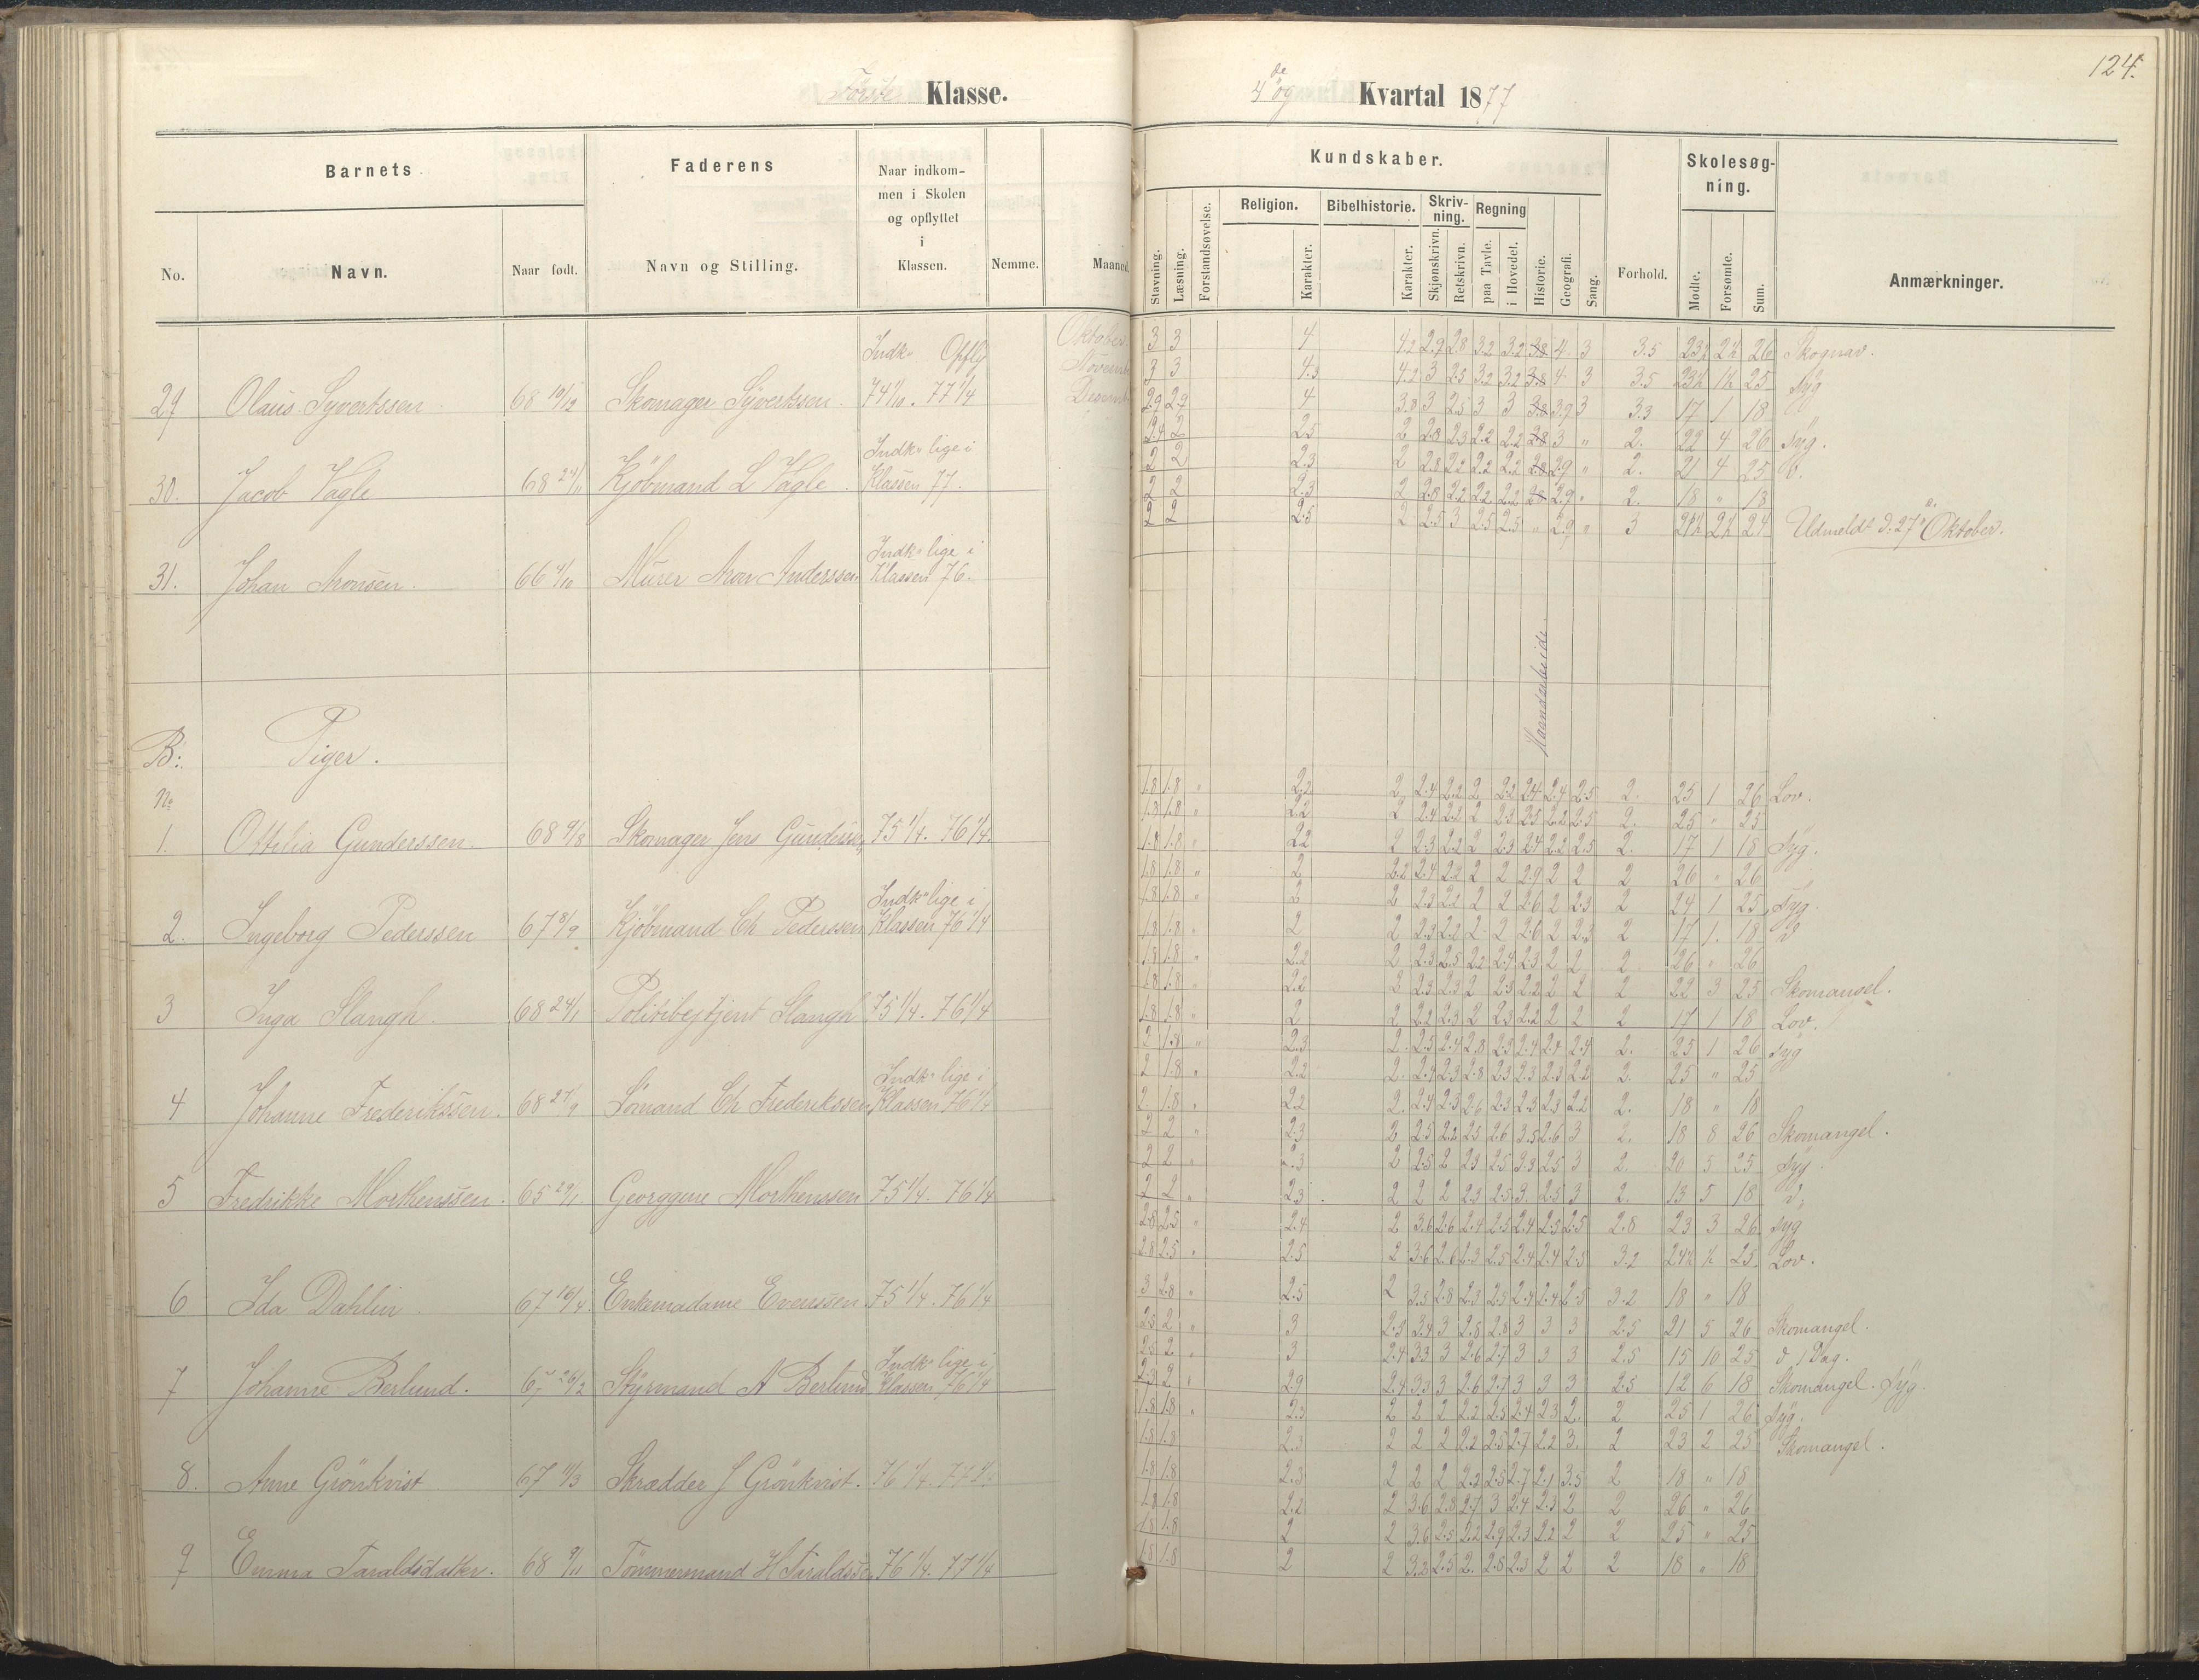 124.
Første Klasse.
4de og Kvartal 1877
Barnets
Faderens
Naar indkommen i Skolen og opflyttet i Klassen.
Nemme.
Maaned.
No.
Navn.
Naar født.
Navn og Stilling.
Kundskaber.
Skolesøgning.
Stavning.
Læsning.
Forstandsøvelse.
Religion.
Karakter.
Bibelhistorie.
Karakter.
Skrivning.
Skjønskrivn.
Retskrivn.
Regning
paa Tavle.
i Hovedet.
Historie.
Geografi.
Sang.
Forhold.
Mødte.
Forsømte.
Sum.
Anmærkninger.
Indk. Opfly
Oktober 3 3 4 4.2 2.9 2.8 3.2 3.2 3.8 4 3 3.5 23½ 2½ 26
Novemb 3 3 4.3 4.2 3 2.5 3.2 3.2 3.8 4 3 3.5 23½ 1½ 25 Syg
29 Olaus Syvertssen 68 10/12 Skomager Syvertssen 74 1/10. 77 1/4
Decemb 2.9 2.9 4 3.8 3 2.5 3 3 3.8 3.9 3 3.3 17 1 18 "
Indk. lige i
2.4 2 2.5 2 2.8 2.3 2.2 2.2 2.8 3 " 2. 22 4 26 Syg.
2 2 2.3 2 2.8 2.2 2.2 2.2 2.8 2.9 " 2. 21 4 25
30. Jacob Vagle 68 24/11 Kjöbmand L Vagle. Klassen 77.
2 2 2.3 2 2.8 2.2 2.2 2.2 2.8 2.9 " 2. 18 " 18
2 2 2.5 2 2.5 3 2.5 2.5 " 2.9 " 3 21½ 2½ 24 Udmeldt d. 27 Oktober.
Indk. lige i
31. Johan Aronsen. 66 4/10 Murer Aron Anderssen Klassen 76.
Haandarbeide.
B: Piger.
No
1.8 1.8 " 2.2 2 2.4 2.2 2 2.2 2.4 2.4 2.5 2. 25 1 26 Lov.
1.8 1.8 " 2.2 2 2.4 2.2 2 2.3 2.5 2.2 2.5 2. 25 " 25
1. Ottilia Gunderssen. 68 9/8 Skomager Jens Gunderssen 75 1/4. 76 1/4.
1.8 1.8 " 2.2 2 2.3 2.2 2 2.3 2.4 2.2 2.5 2. 17 1 18 Syg.
1.8 1.8 " 2 2.2 2.4 2.2 2 2 2.9 2 2 2 26 " 26
Indk. lige i
1.8 1.8 " 2 2 2.3 2.2 2 2 2.6 2 2.3 2 24 1 25 Syg.
2. Ingeborg Pederssen 67 8/9 Kjöbmand Ch Pederssen Klassen 76 1/4
1.8 1.8 " 2 2 2.3 2.2 2 2 2.6 2 2.3 2 17 1. 18
1.8 1.8 " 2.2 2 2.3 2.5 2.2 2.4 2.3 2 2 2 26 " 26
1.8 1.8 " 2.2 2 2.3 2.3 2 2.3 2.2 2 2 2 22 3 25 Skomangel.
3 Inga Stangh. 68 24/1 Politibetjent Stangh 75 1/4. 76 1/4
1.8 1.8 " 2 2 2.2 2.3 2 2.3 2.2 2 2 2 17 1 18 Lov.
2 1.8 " 2.3 2. 2.5 2.4 2.8 2.3 2.4 2.4 2.4 2. 25 1 26 Syg
Indk. lige i
2 1.8 " 2.2 2. 2.4 2.3 2.8 2.3 2.3 2.3 2.2 2. 25 " 25
4 Johanne Frederikssen. 68 27/9 Sömand Ch Frederikssen Klassen 76 1/4
2 1.8 " 2.2 2. 2.4 2.3 2.6 2.3 2.3 2.3 2.2 2. 18 " 18
2 2 " 2.3 2 2.5 2.2 2.5 2.6 3.5 2.6 3 2. 18 8 26 Skomangel.
2 2 " 2.3 2 2.5 2 2.3 2.5 3.3 2.5 3 2. 20 5 25 Syg.
5 Fredrikke Morthenssen. 65 29/1. Georggine Morthenssen 75 1/4. 76 1/4
2 2 " 2.3 2 2 2 2.3 2.5 3. 2.5 3 2. 13 5 18
2.8 2.5 " 2.4 2 3.6 2.6 2.4 2.5 2.4 2.5 2.5 2.8 23 3 26 Syg
2.8 2.5 " 2.5 2 3.6 2.6 2.3 2.5 2.4 2.4 2.5 3.2 24½ ½ 25 Lov.
6 Ida Dahlin. 67 16/4. Enkemadame Evenssen 75 1/4. 76 1/4
3 2.8 " 2.5 2 3.5 2.8 2.3 2.5 2.4 2.4 2.5 3.2 18 " 18
2.5 2 " 3 2.3 3.4 3 2.8 2.8 3 3 3 2.5 21 5 26 Skomangel.
Indk. lige i
2.5 2 " 3 2.4 3.3 3 2.6 2.7 3 3 3 2.5 15 10 25 d 1 Dag.
7 Johanne Berlund. 67 26/2 Styrmand A Berlund Klassen 76 1/4
2.3 2 " 2.9 2.4 3.3 3 2.6 2.7 3 3 3 2.5 12 6 18 Skomangel. Syg.
1.8 1.8 " 2.3 2 2 2 2.2 2.5 2.4 2.3 2. 2 25 1 26 Syg.
1.8 1.8 2.3 2 2 2 2.2 2.5 2.7 2.2 3. 2 23 2 25 Skomangel.
8. Anne Grönkvist 67 11/3 Skrædder J Grönkvist. 76 1/4. 77 1/4.
1.8 1.8 2.3 2 2 2 2.2 2.5 2.7 2.1 3.5 2 18 " 18
1.8 1.8 2.2 2 3.6 2.8 2.7 3 2.4 2.3 2 2 26 " 26
1.8 1.8 2 2 3.6 2.5 2.2 2.9 2.3 2.2 2 2 25 " 25
9 Emma Taraldsdatter. 68 9/11 Tömmermand H Taraldsen 76 1/4. 77 1/4
1.8 1.8 2 2 3.2 2.5 2. 2.8 2.3 2 2 2 18 " 18